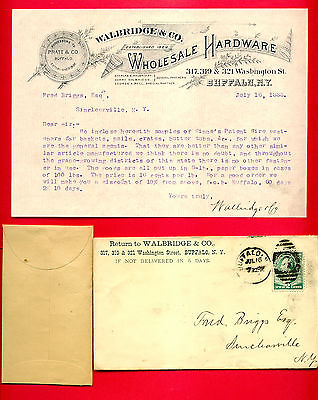 WALBRIDGE & CO.
SUCCESSORS TO
PRATT & CO
BUFFALO
ESTABLISHED
WHOLESALE HARDWARE
317, 319 & 321 Washington St.
BUFFALO, N.Y.
Fred Briggs, Esq
July 16, 1888.
Sinclearville, N. Y.
Dear Sir,-
We inclose herewith samples of Patent Wire
for baskets, pails, crates, butter tubs, &c., for which we
are the general agents. That they are better than any other similar
article manufactured there is no doubt, and throughout
the grape-growing districts of this state there is no other
in use. The goods are all put up in 5-lb. paper boxes in cases
of 100 lbs. The price is 10 cents per lb. For a good order we
will make you a discount of 10% from above, f.o.b. Buffalo, 60 days
2% 10 days.
Yours truly,
Walbridge & Co
Return to WALBRIDGE & CO.
317, 319 & 321 Washington Street, BUFFALO, N. Y.
IF NOT DELIVERED IN 5 DAYS.
BUFFALO
JUL 16
Fred Briggs Esq.
Sinclearville
N.Y.